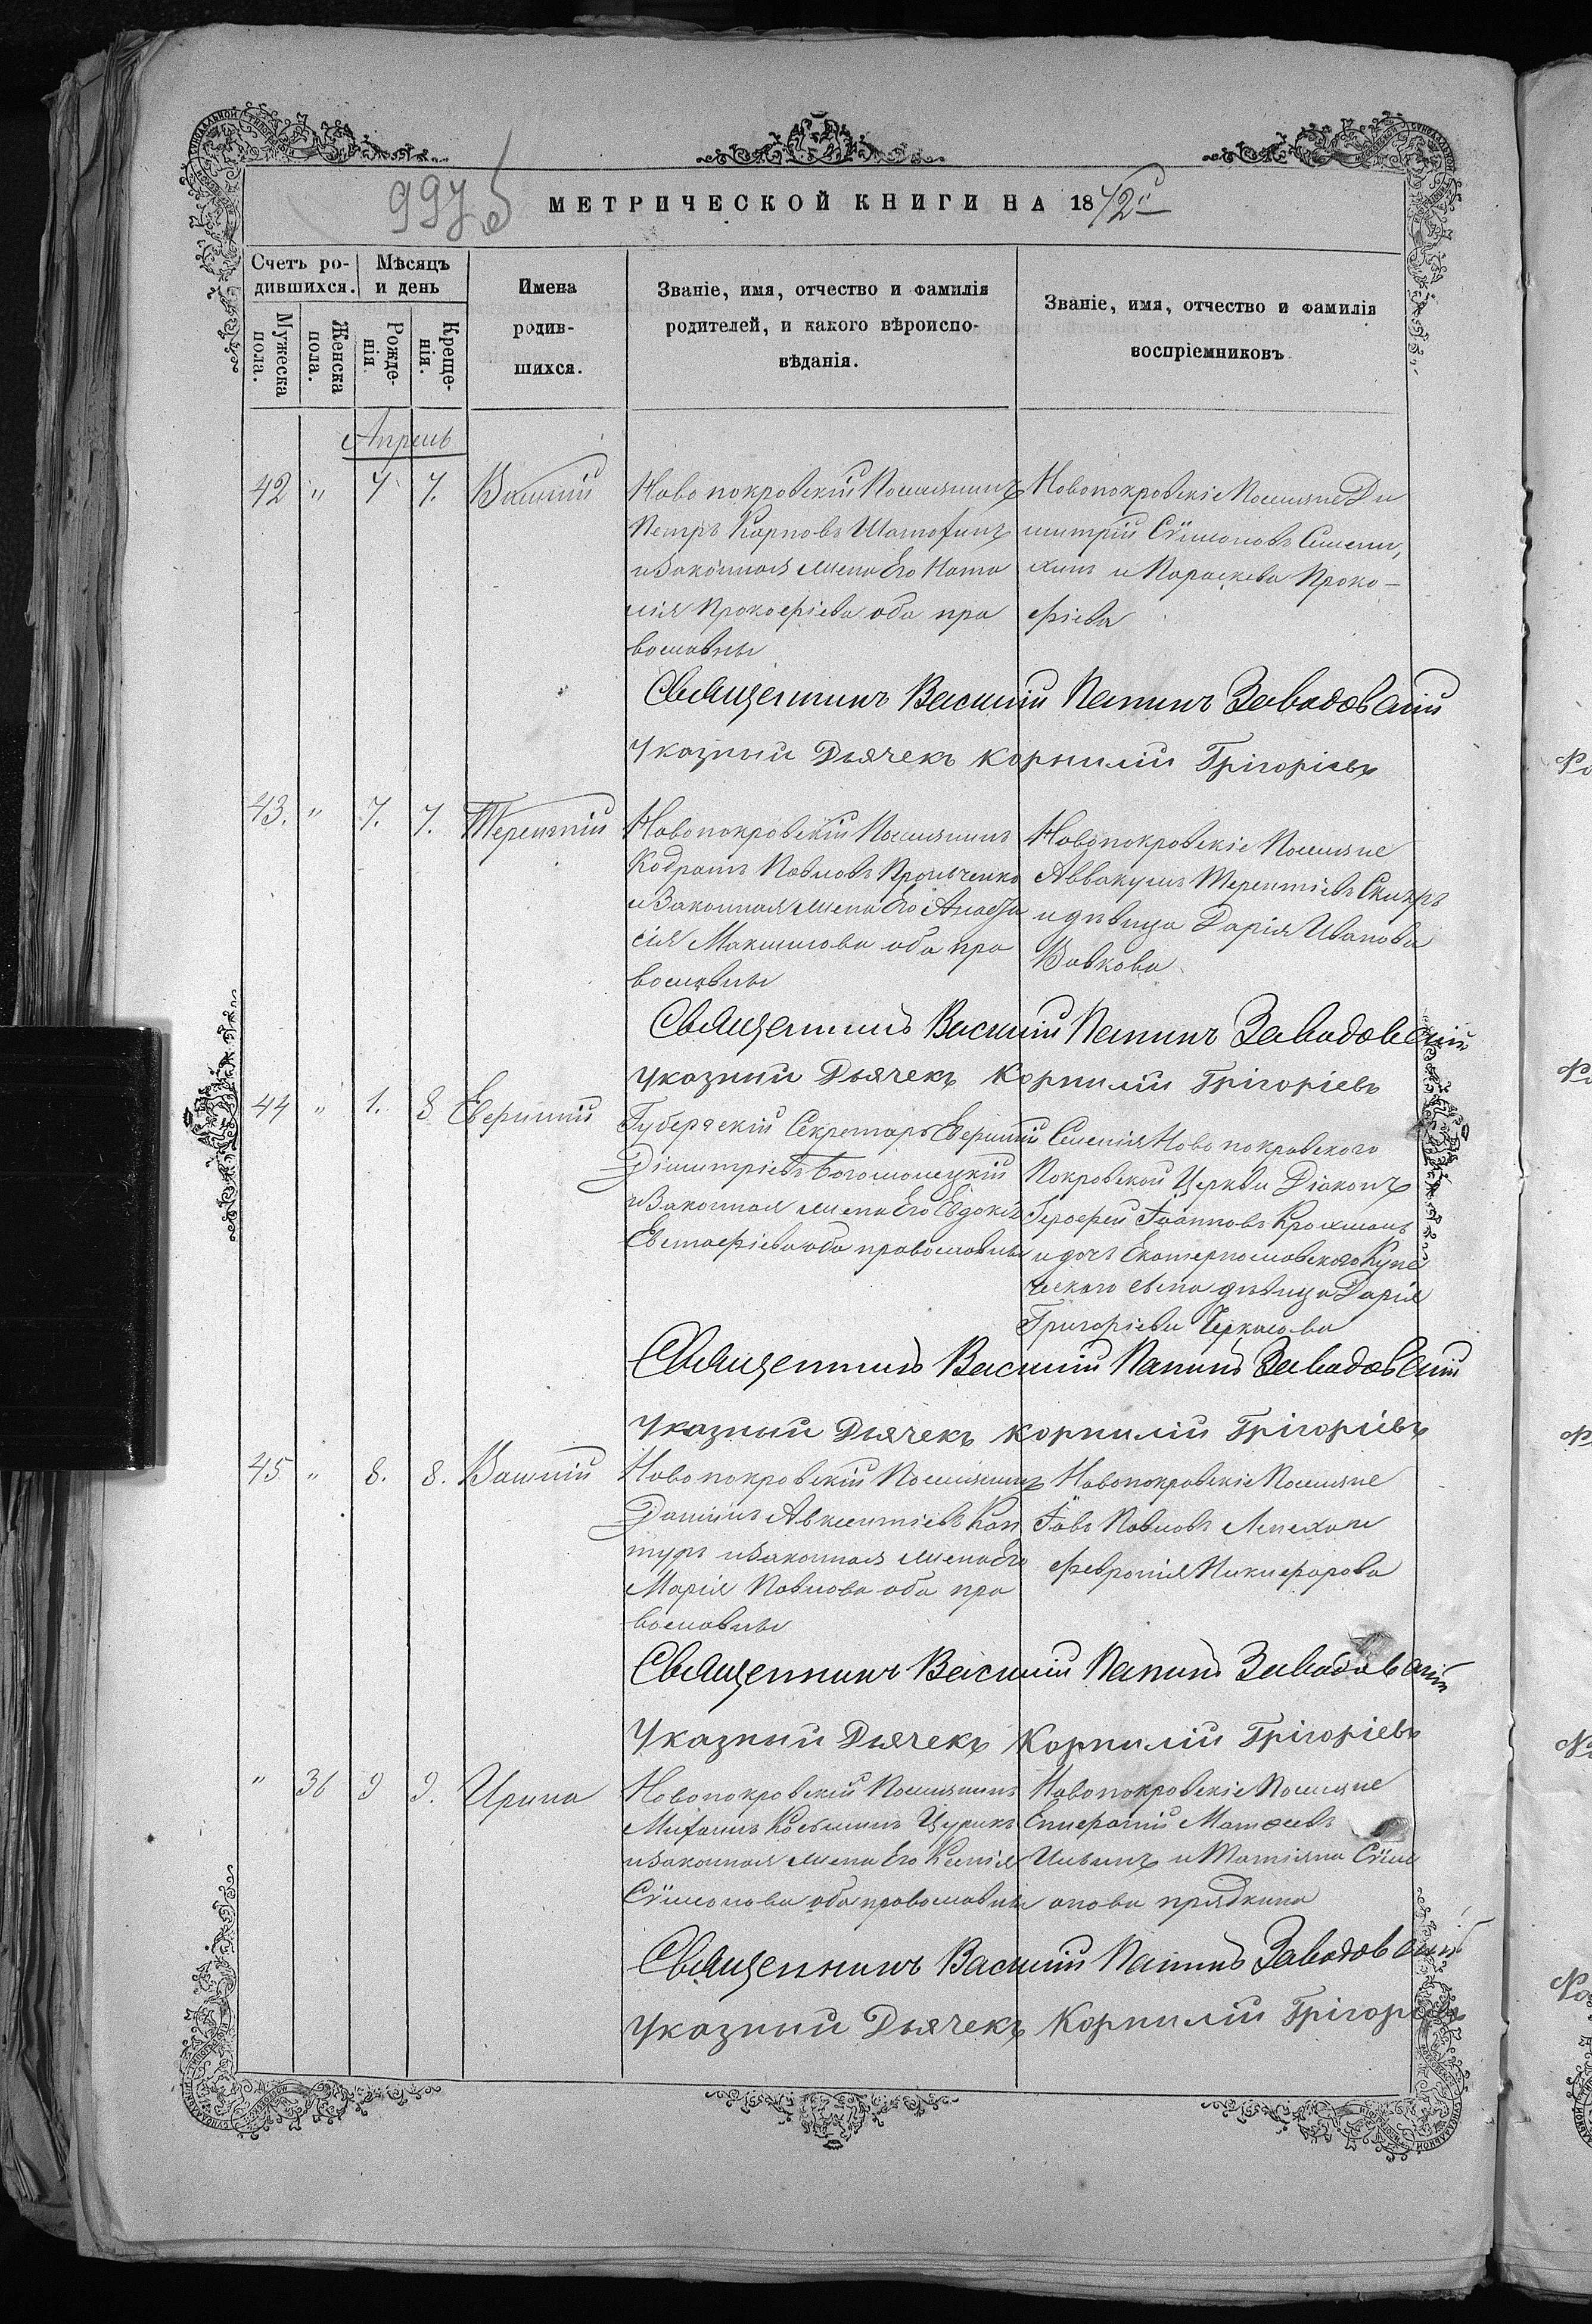 997 б
МЕТРИЧЕСКОЙ КНИГИ НА 1872й
Счетъ родившихся.
Мѣсяцъ и день
Имена родившихся.
Званіе, имя, отчество и фамилія
родителей, и какого вѣроиспо-
вѣданія.
Званіе, имя, отчество и фамилія
воспріемниковъ.
Мужеска пола.
Женска пола.
Рожденія.
Крещенія.
Апрель
42 " 7 7. Василій
Новопокровскій Поселянинъ
Петръ Карповъ
и законная жена Его Ната
лія Прокофіева оба пра
вославны
Новопокровскіе Поселяне Ди
митрій Сѵмоновъ
и Параскева Проко-
фіева
Священникъ Василій Папинъ Завадовскій
Указный Дьячекъ Корнилій Грігоріевъ
43. " 7. 7. Терентій
Новопокровскій Поселянинъ
Кодратъ Павловъ
и Законная жена Его Анаста
сія Максимова оба пра
вославны
Новопокровскіе Поселяне
Аввакумъ Терентіевъ
и дѣвица Дарія Иванова
Вовкова
Священникъ Василій Папинъ Завадовскій
Указный Дьячекъ Корнилій Грігоріевъ
44 " 1. 8
Губернскій Секретарь
Дімитріевъ Богомолецкій
и Законная жена Его Евдокія
Евстафіева оба православны
Селенія Новопокровского
Покровской Церкви Діаконъ
Іерофей Іоанновъ
и дочь Екатеринославского Купе
ческого сына дѣвица Дарія
Григоріева Черкасова
Священникъ Василій Папинъ Завадовскій
Указный Дьячекъ Корнилій Грігоріевъ
45 " 8. 8. Василій
Новопокровскій Поселянинъ
Даніилъ Авксентіевъ Кан
туръ и законная жена Его
Марія Павлова оба пра
вославны
Новопокровскіе Поселяне
Іовъ Павловъ
Февронія Никифорова
Священникъ Василій Папинъ Завадовскій
Указный Дьячекъ Корнилій Грігоріевъ
" 36 9 9. Ирина
Новопокровскій Поселянинъ
Михаилъ Косьминъ Цурикъ
и законная жена Его Ксенія
Сѵмонова оба православны
Новопокровскіе Поселяне
Епифаній Матѳеевъ
и Татіяна Сѵм
онова прядкина
Священникъ Василій Папинъ Завадовскій
Указный Дьячекъ Корнилій Грігоріевъ